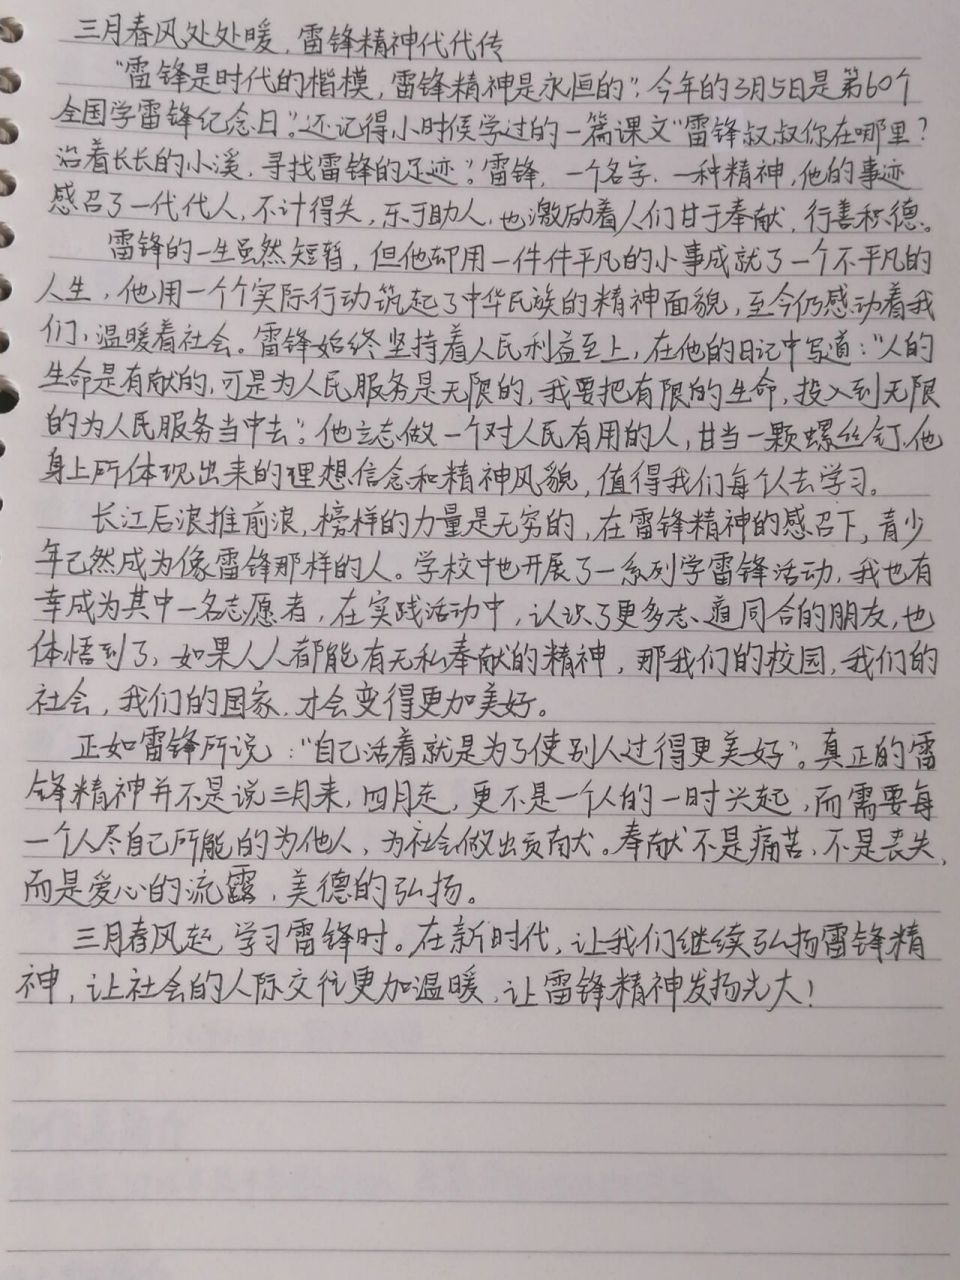 三月春风处处暖，雷锋精神代代传
“雷锋是时代的楷模，雷锋精神是永恒的”，今年的3月5日是第60个
全国学雷锋纪念日。还记得小时侯学过的一篇课文“雷锋叔叔你在哪里？
沿着长长的小溪，寻找雷锋的足迹”。雷锋，一个名字，一种精神，他的事迹
感召了一代代人，不计得失，乐于助人，也激励着人们甘于奉献，行善积德。
雷锋的一生虽然短暂，但他却用一件件平凡的小事成就了一个不平凡的
人生，他用一个个实际行动筑起了中华民族的精神面貌，至今仍感动着我
们，温暖着社会。雷锋始终坚持着人民利益至上，在他的日记中写道：“人的
生命是有献的，可是为人民服务是无限的，我要把有限的生命，投入到无限
的为人民服务当中去”。他立志做一个对人民有用的人，甘当一颗螺丝钉，他
身上所体现出来的理想信念和精神风貌，值得我们每个人去学习。
长江后浪推前浪，榜样的力量是无穷的，在雷锋精神的感召下，青少
年已然成为像雷锋那样的人。学校中也开展了一系列学雷锋活动，我也有
幸成为其中一名志愿者，在实践活动中，认识了更多志道同合的朋友，也
体悟到了，如果人人都能有无私奉献的精神，那我们的校园，我们的
社会，我们的国家，才会变得更加美好。
正如雷锋所说：“自己活着就是为了使别人过得更美好”。真正的雷
锋精神并不是说三月来，四月走，更不是一个人的一时兴起，而需要每
一个人尽自己所能的为他人，为社会做出贡献。奉献不是痛苦，不是丧失，
而是爱心的流露，美德的弘扬。
三月春风起，学习雷锋时。在新时代，让我们继续弘扬雷锋精
神，让社会的人际交往更加温暖，让雷锋精神发扬光大！